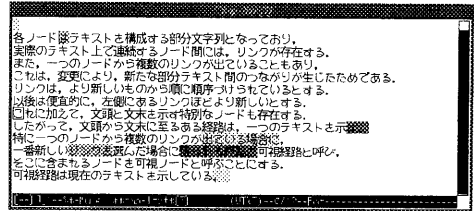 各ノード　テキストを構成する部分文字列となっており，
実際のテキスト上で連続するノード間には，リンクが存在する．
また，一つのノードから複数のリンクが出ていることもあり，
これは，変更により，新たな部分テキスト間のつながりが生じたためである．
リンクは，より新しいものから順に順序づけられているとする．
以後は便宜的に，左側にあるリンクほどより新しいとする．
これに加えて，文頭と文末を示す特別なノードも存在する．
したがって，文頭から文末に至るある経路は，一つのテキストを示
特に一つのノードから複数のリンクが出ている場合に，
一番新しい　を選んだ場合に　可視経路と呼び，
そこに含まれるノードを可視ノードと呼ぶことにする．
可視経路は現在のテキストを示している．